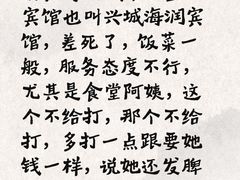 宾馆也叫兴城海润宾
馆，差死了，饭菜一
般，服务态度不行，
尤其是食堂阿姨，这
个不给打，那个不给
打，多打一点跟要她
钱一样，说她还发脾